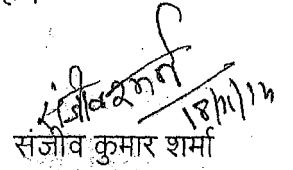 संजीव शर्मा
18/11/14
संजीव कुमार शर्मा